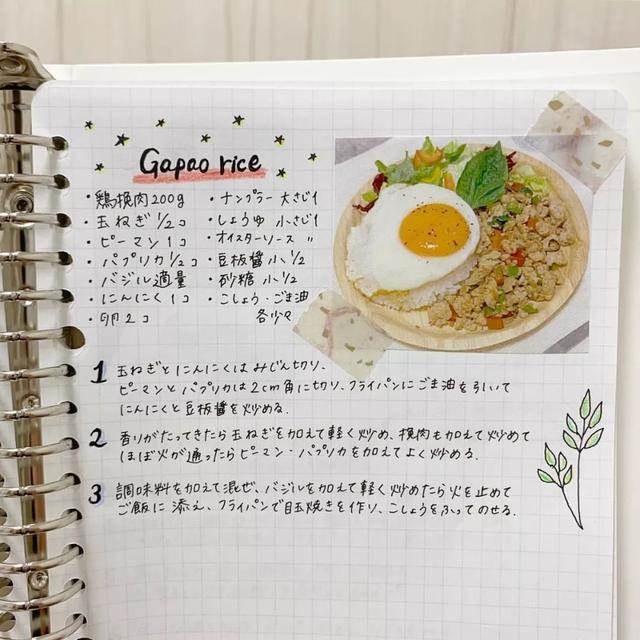 Gapao rice
・鶏挽肉200g
・玉ねぎ 1/2コ
・ピーマン 1コ
・パプリカ 1/2コ
・バジル 適量
・にんにく 1コ
・卵 2コ
・ナンプラー 大さじ1
・しょうゆ 小さじ1
・オイスターソース 〃
・豆板醤 小1/2
・砂糖 小1/2
・こしょう・ごま油
各少々
1 玉ねぎとにんにくはみじん切り、
ピーマンとパプリカは2cm角に切り、フライパンにごま油を引いて
にんにくと豆板醤を炒める.
2 香りがたってきたら玉ねぎを加えて軽く炒め、挽肉も加えて炒めて
ほぼ火が通ったらピーマン・パプリカを加えてよく炒める.
3 調味料を加えて混ぜ、バジルを加えて軽く炒めたら火を止めて
ご飯に添え、フライパンで目玉焼きを作り、こしょうをふってのせる.